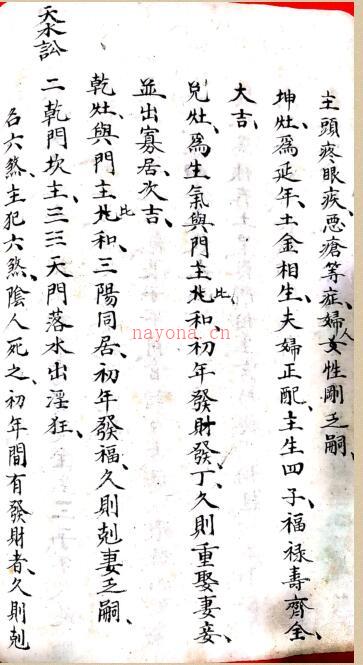 主頭疼眼疾惡瘡等症、婦人女性剛乏嗣、
坤灶、爲延年、土金相生、夫婦正配、主生四子、福禄壽齊全、
大吉、
兌灶、爲生氣與門主比和、初年發財發丁、久則重娶妻妾、
並出寡居、次吉、
乾灶、與門主比和、三陽同居、初年發福、久則剋妻乏嗣、
天水訟
二乾門坎主、☰☵天門落水出淫狂、
名六煞、主犯六煞、陰人死之、初年間有發財者、久則剋
nayona.cn